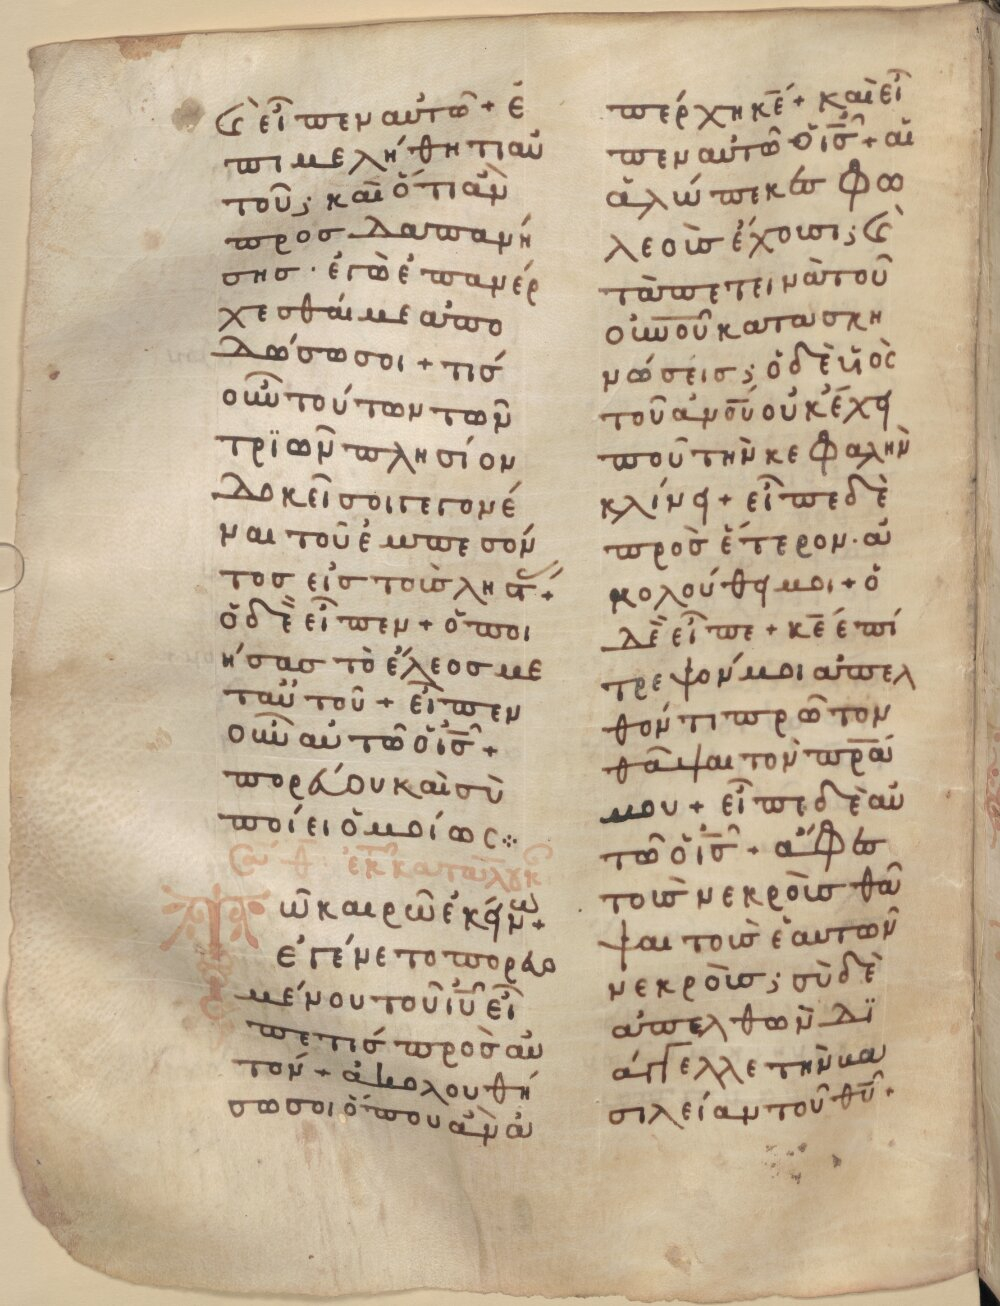 Ϛ̀ εἶπεν αὐτῶ + ἐ
πιμελήθητι αὐ
τοῦ; καὶ ὅτι ἂν
προσδαπανή
σησ · ἐγὼ ἐν τῶ
ἐπανέρ
χεσθαί με ἀπο
δώσω σοι + τίσ
οὖν τούτων τῶν
τριῶν πλησίον
δοκεῖ σοι γεγονέ
ναι τοῦ ἐμπεσόν
τοσ εἰσ τοὺσ ληστ +
ὁ δὲ εἶπεν + ὁ ποι
ήσασ τὸ ἔλεοσ με
τ αὐτοῦ + εἶπεν
οὖν αὐτῶ ὁ ι̅σ̅ +
πορεύου καὶ σὺ
ποίει ὁμοίως ⁘
Σα θ̅ ἐκ κατὰ λουκ
Τῶ καιρῶ ἐκείνω +
ἐγένετο πορευο
μένου τοῦ ι̅υ̅ εἶ
πε τίσ πρὸσ αὐ
τόν + ἀκολουθή
σω σοι ὅπου ἂν ἀ
πέρχη κ̅ε̅ + καὶ εἶ
πεν αὐτῶ ὁ ι̅σ̅ + αἱ
ἀλώπεκεσ φω
λεοὺσ ἔχουσι; Ϛ̀
τὰ πετεινὰ τοῦ
ο̅υ̅ν̅ο̅υ̅ κατασκη
νώσεισ; ὁ δὲ υἱὸς
τοῦ α̅ν̅ο̅υ̅ οὐκ ἔχει
ποῦ τὴν κεφαλὴν
κλίνει + εἶπε δὲ
πρὸσ ἕτερον · ἀ
κολούθει μοι + ὁ
δὲ εἶπε + κ̅ε̅ ἐπί
τρεψόν μοι ἀπελ
θόντι πρῶτον
θάψαι τὸν π̅ρ̅α̅
μου + εἶπε δὲ αὐ
τῶ ὁ ι̅σ̅ + ἄφεσ
τοὺσ νεκροὺσ θά
ψαι τοὺσ ἑαυτῶν
νεκροὺσ; σὺ δὲ
ἀπελθὼν δι
άγγελλε τὴν βα
σιλείαν τοῦ θ̅υ̅ ·